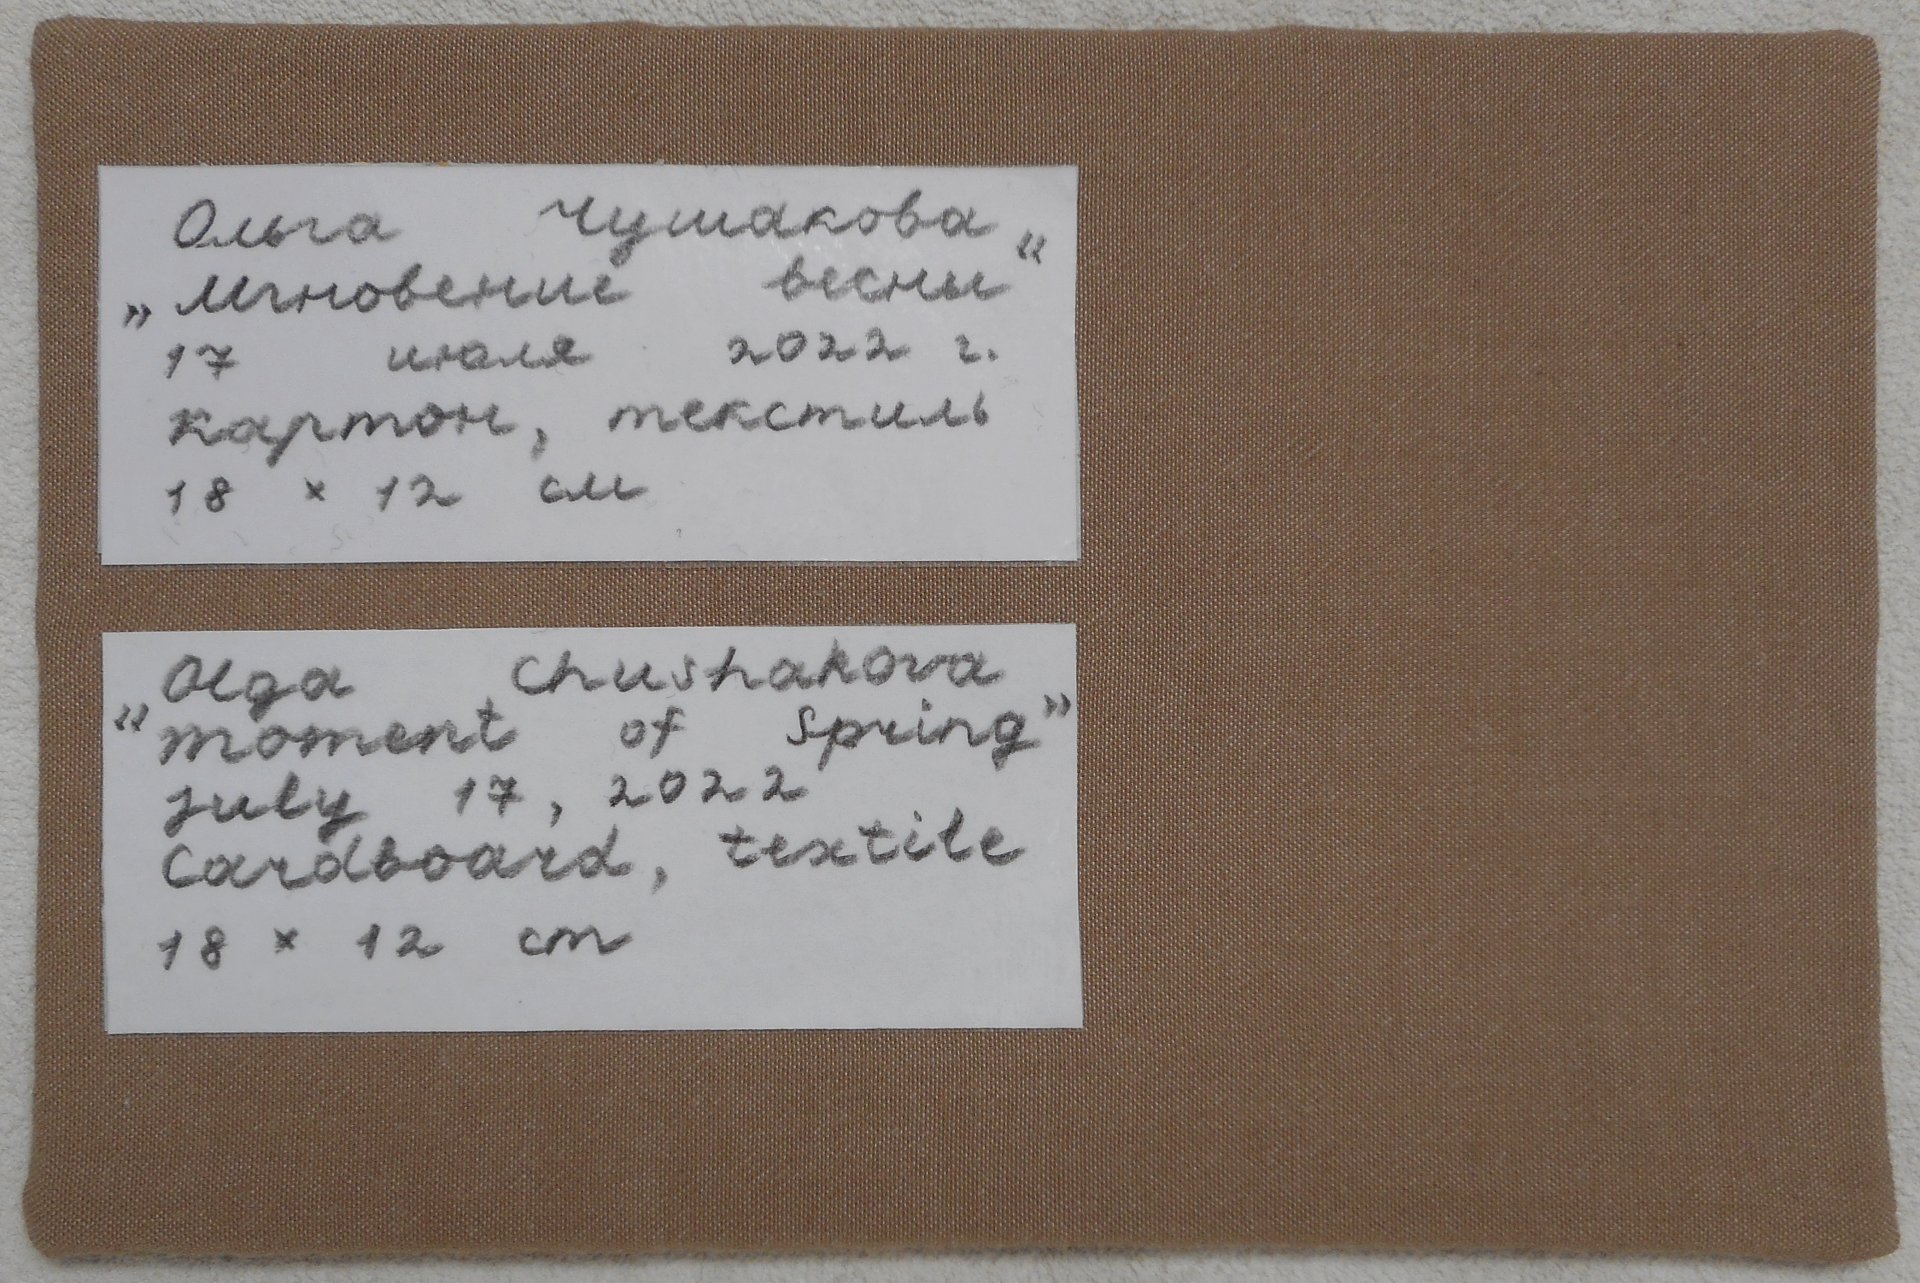 Ольга Чушакова
„Мгновение весны“
17 июля 2022 г.
картон, текстиль
18 × 12 см
Olga Chushakova
“moment of Spring”
july 17, 2022
Cardboard, textile
18 × 12 cm